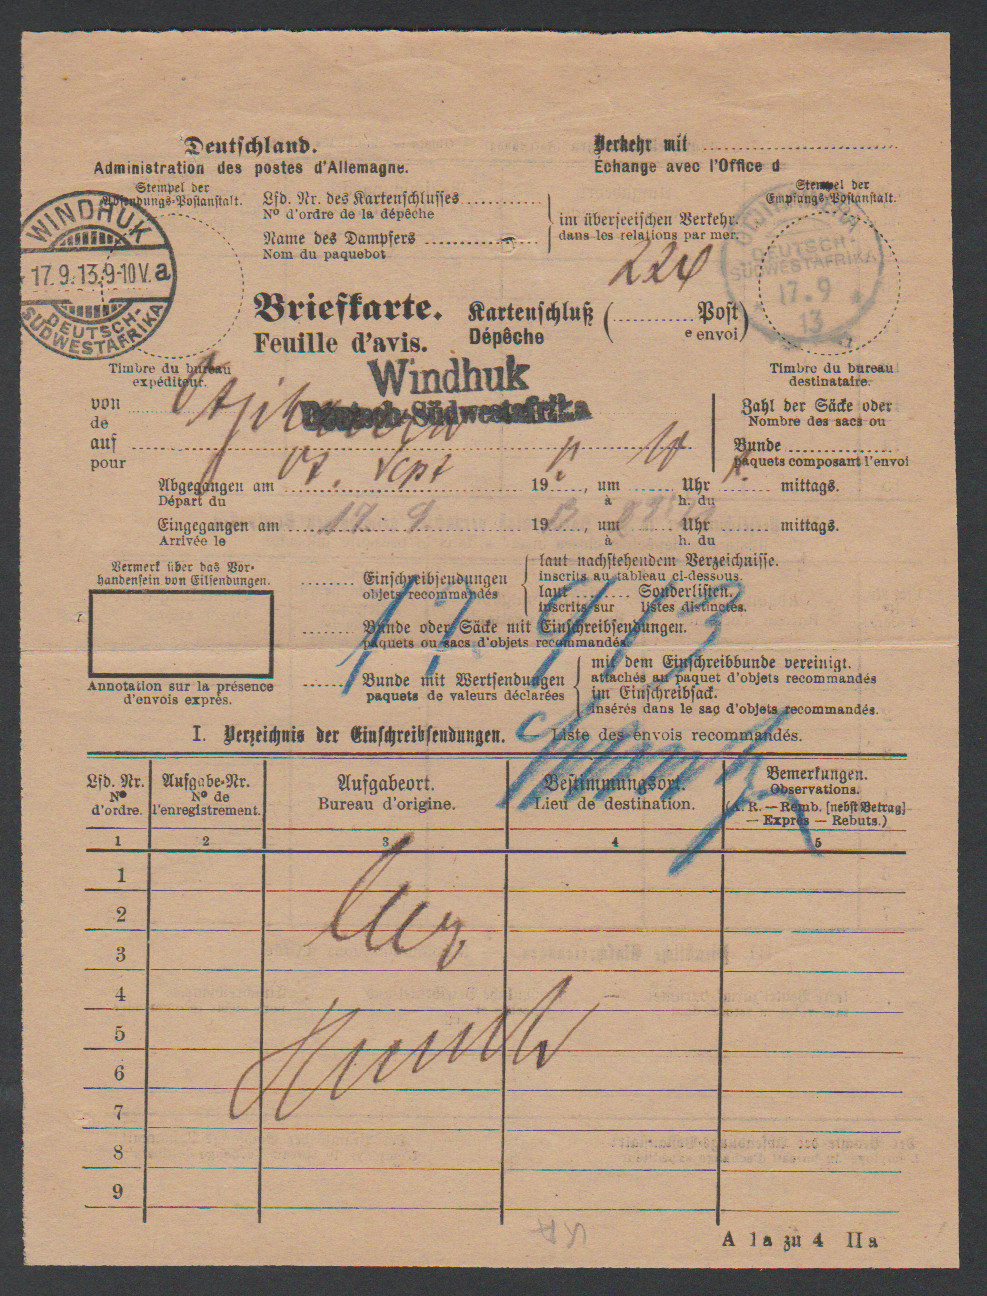 Deutschland.
Administration des postes d'Allemagne.
Verkehr mit
Échange avec l'Office d
Stempel der
Absendungs-Postanstalt.
Lfd. Nr. des Kartenschlusses
Nº d'ordre de la dépêche
Name des Dampfers
Nom du paquebot
im überseeischen Verkehr.
dans les relations par mer.
Stempel der
Empfangs-Postanstalt.
WINDHUK
17.9.13.9-10V. a
DEUTSCH-
SÜDWESTAFRIKA
DEUTSCH-
SÜDWESTAFRIKA
17.9
13
Briefkarte.
Feuille d'avis.
Kartenschluß ( Post)
Dépêche e envoi)
Windhuk
Deutsch-Südwestafrika
Timbre du bureau
expéditeur.
Timbre du bureau
destinataire.
von
de
auf
pour
Zahl der Säcke oder
Nombre des sacs ou
Bunde
paquets composant l'envoi
Sept
Abgegangen am 19 , um Uhr mittags.
Départ du à h. du
17. 9. 13
Eingegangen am 19 , um Uhr mittags.
Arrivée le à h. du
Vermerk über das Vor-
handensein von Eilsendungen.
Annotation sur la présence
d'envois exprès.
Einschreibsendungen
objets recommandés
laut nachstehendem Verzeichnisse.
inscrits au tableau ci-dessous.
laut Sonderlisten.
inscrits sur listes distinctes.
Bunde oder Säcke mit Einschreibsendungen.
paquets ou sacs d'objets recommandés.
Bunde mit Wertsendungen
paquets de valeurs déclarées
mit dem Einschreibbunde vereinigt.
attachés au paquet d'objets recommandés
im Einschreibsack.
insérés dans le sac d'objets recommandés.
17 9 13
I. Verzeichnis der Einschreibsendungen. — Liste des envois recommandés.
Lfd. Nr.
Nº
d'ordre.
Aufgabe-Nr.
Nº de
l'enregistrement.
Aufgabeort.
Bureau d'origine.
Bestimmungsort.
Lieu de destination.
Bemerkungen.
Observations.
(A. R. — Remb. [nebst Betrag]
— Exprès — Rebuts.)
1 2 3 4 5
1
2
3
4
5
6
7
8
9
A 1a zu 4 IIa